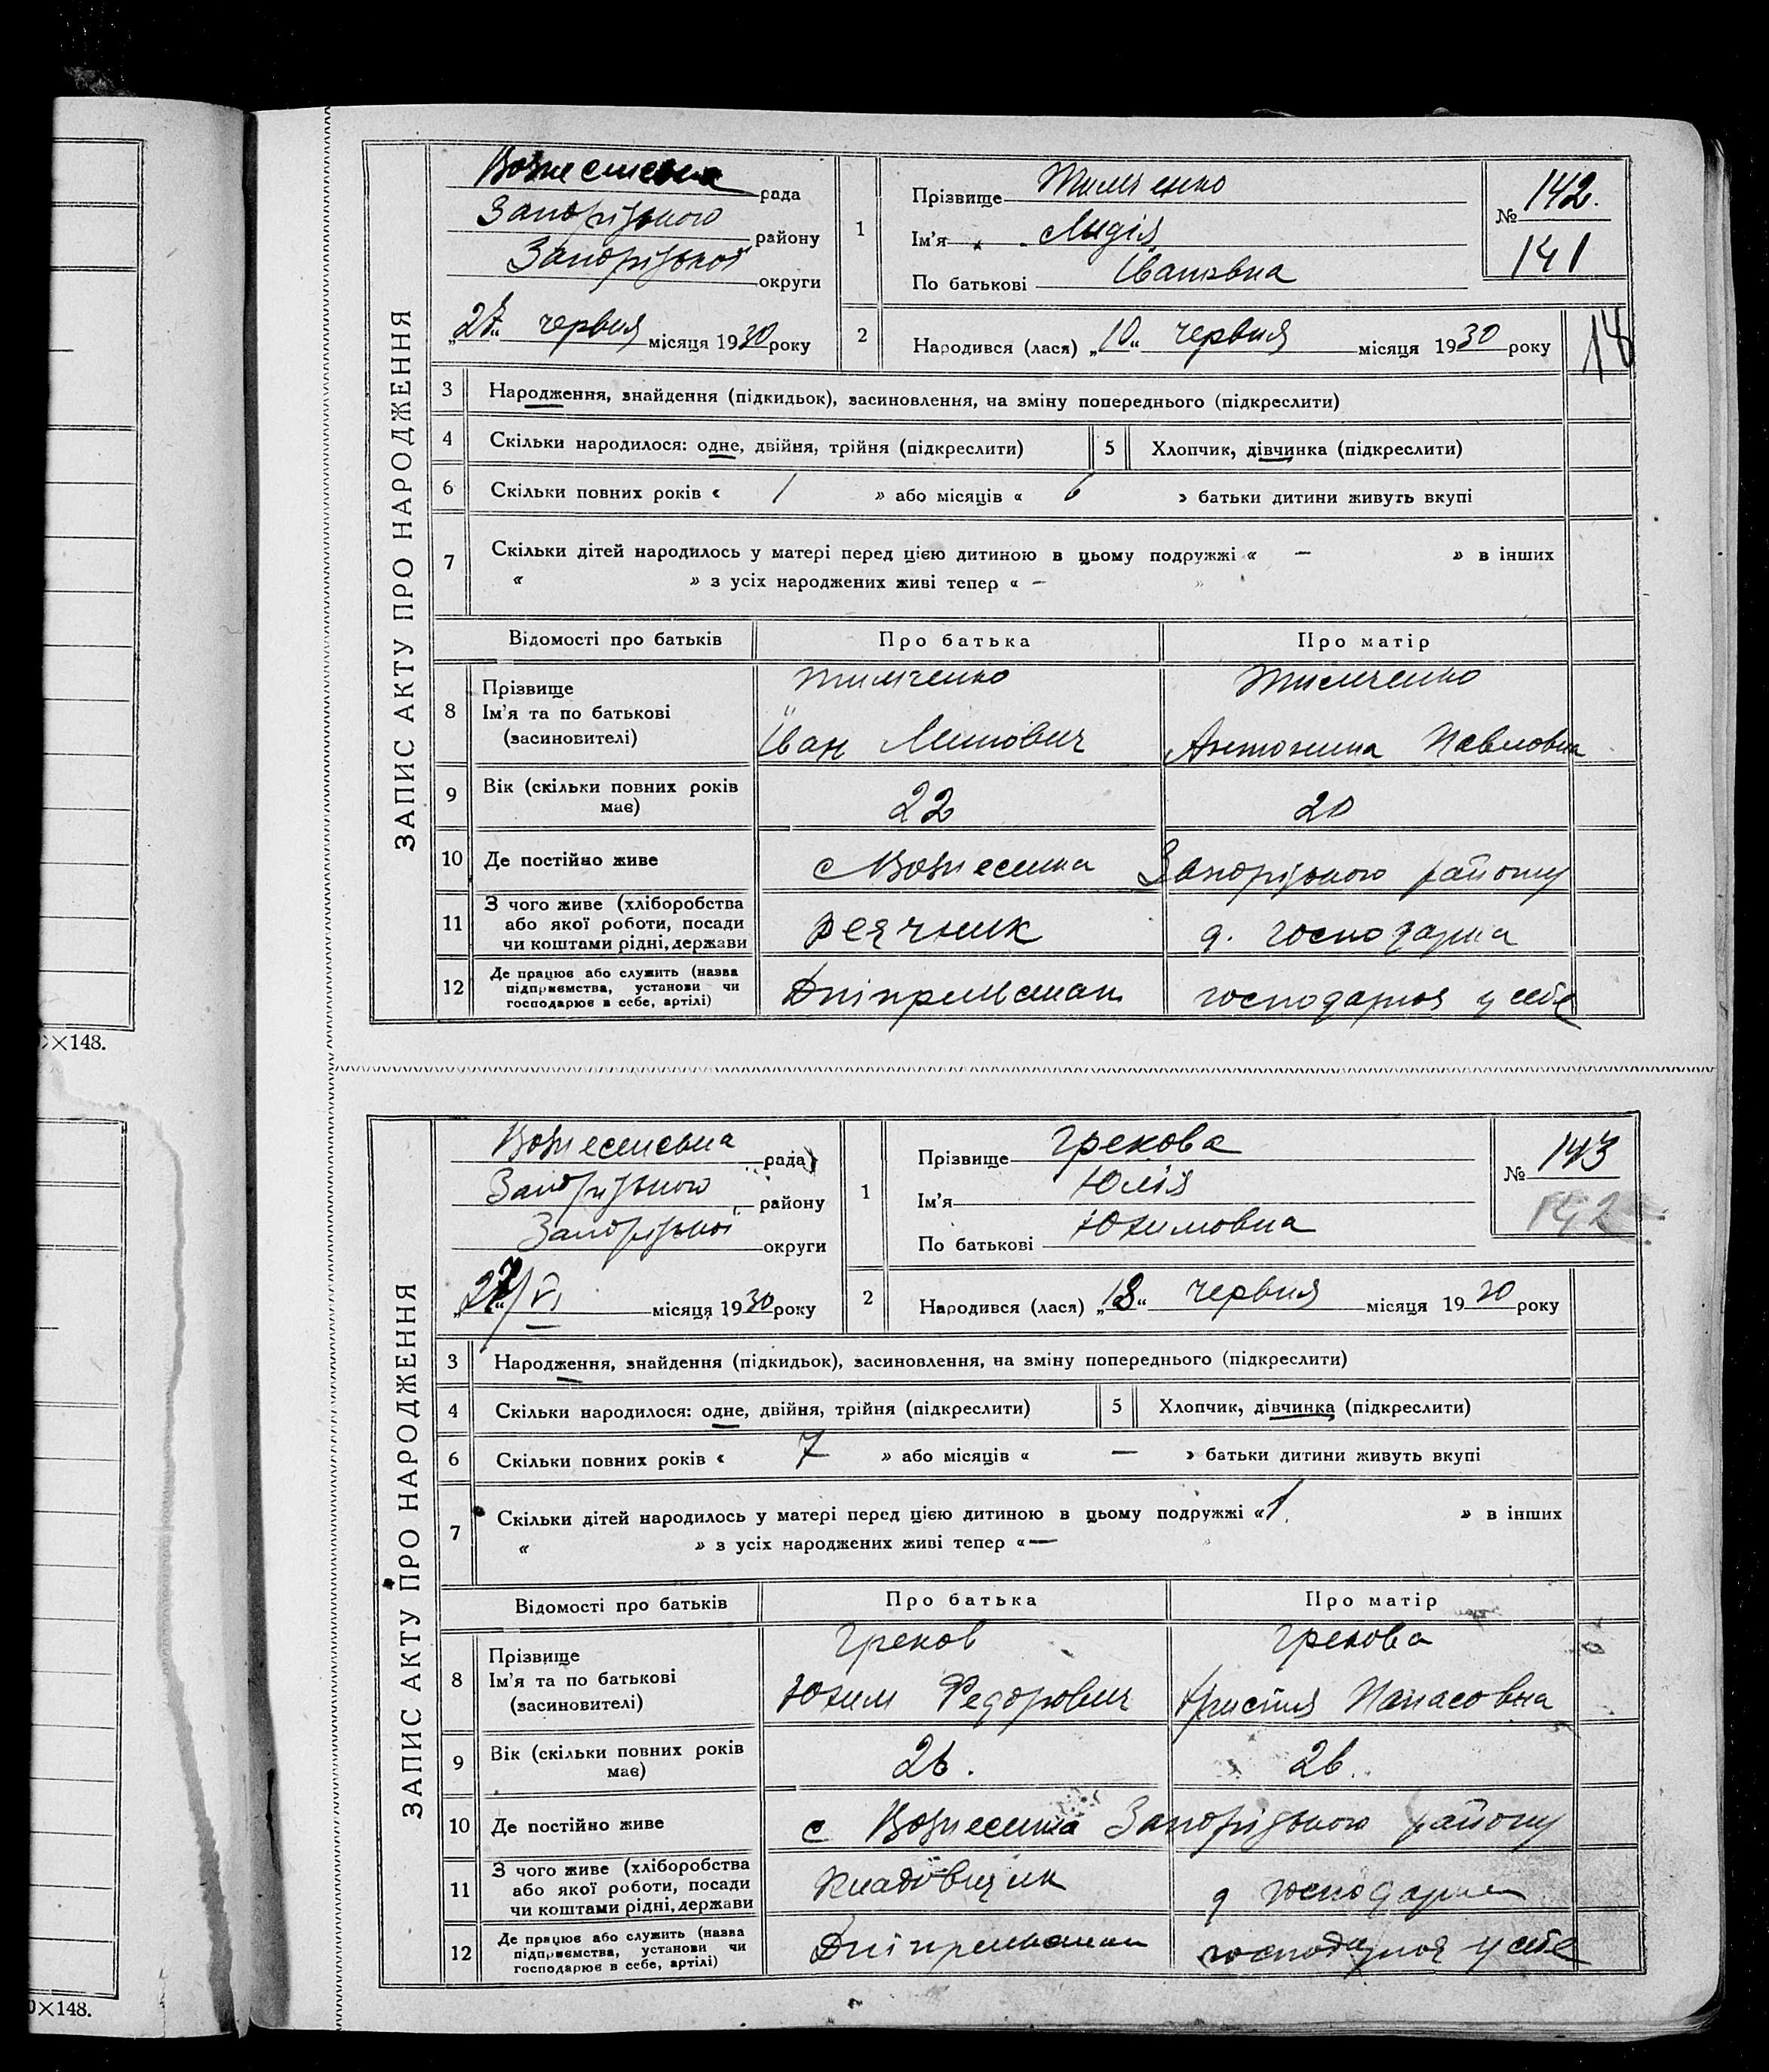 ЗАПИС АКТУ ПРО НАРОДЖЕННЯ
Вознесенська рада
Запорізького району
Запорізької округи
„27“ червня місяця 1930 року
1
Прізвище Тимченко
Ім'я Лидія
По батькові Івановна
№ 142.
141
2
Народився (лася) „10“ червня місяця 1930 року
14
3 Народження, знайдення (підкидьок), засиновлення, на зміну попереднього (підкреслити)
4 Скільки народилося: одне, двійня, трійня (підкреслити) 5 Хлопчик, дівчинка (підкреслити)
6 Скільки повних років « 1 » або місяців « 6 » батьки дитини живуть вкупі
7 Скільки дітей народилось у матері перед цією дитиною в цьому подружжі « — » в інших
« » з усіх народжених живі тепер « — »
Відомості про батьків Про батька Про матір
8 Прізвище Тимченко Тимченко
Ім'я та по батькові
(засновителі) Іван Антонина Павловна
9 Вік (скільки повних років має) 22 20
10 Де постійно живе с Вознесенка Запорізького району
11 З чого живе (хліборобства
або якої роботи, посади
чи коштами рідні, держави д. господарка
12 Де працює або служить (назва
підприємства, установи чи
господарює в себе, артілі) Дніпрельстан господарює у себе
×148.
ЗАПИС АКТУ ПРО НАРОДЖЕННЯ
Вознесенська рада
Запорізького району
Запорізької округи
„27“/VI місяця 1930 року
1
Прізвище Грекова
Ім'я Юлія
По батькові Юхимовна
№ 143
142
2
Народився (лася) „18“ червня місяця 1930 року
3 Народження, знайдення (підкидьок), засиновлення, на зміну попереднього (підкреслити)
4 Скільки народилося: одне, двійня, трійня (підкреслити) 5 Хлопчик, дівчинка (підкреслити)
6 Скільки повних років « 7 » або місяців « — » батьки дитини живуть вкупі
7 Скільки дітей народилось у матері перед цією дитиною в цьому подружжі « 1 » в інших
« » з усіх народжених живі тепер « — »
Відомості про батьків Про батька Про матір
8 Прізвище Греков Грекова
Ім'я та по батькові
(засиновителі) Юхим Федорович Христия Панасовна
9 Вік (скільки повних років має) 26. 26.
10 Де постійно живе с Вознесенка Запорізького району
11 З чого живе (хліборобства
або якої роботи, посади
чи коштами рідні, держави Кладовщик д господарка
12 Де працює або служить (назва
підприємства, установи чи
господарює в себе, артілі) Дніпрельстан господарює у себе
×148.